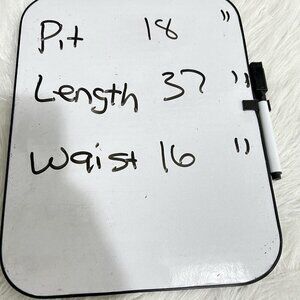 Pit 18 "
Length 37 "
Waist 16 "